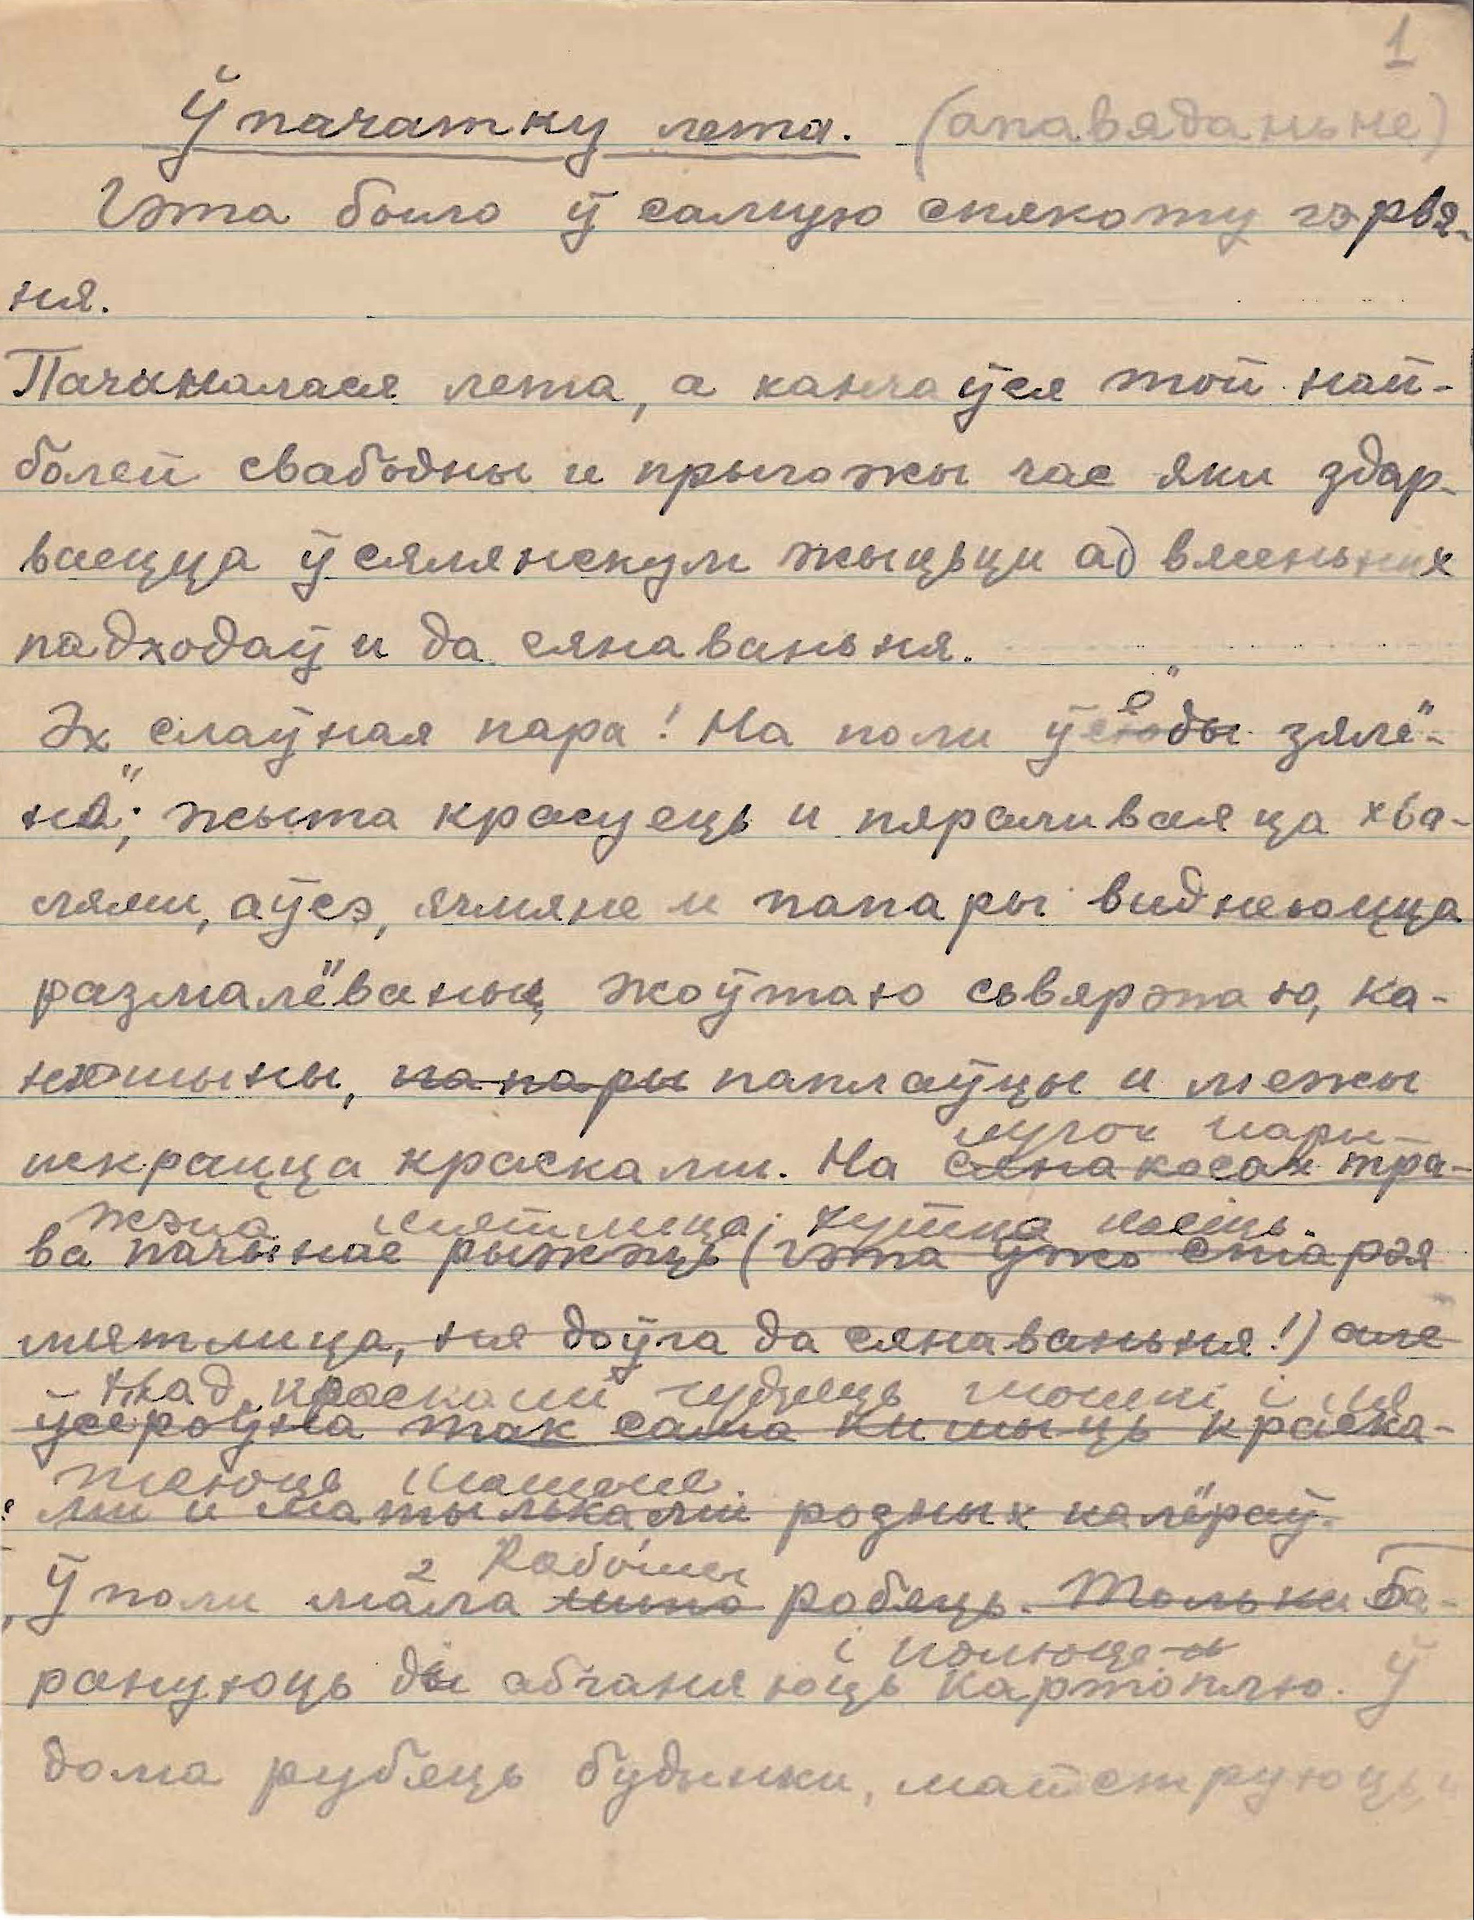 1
Ў пачатку лета. (апавяданьне)
Гэта было ў самую спякоту чэрвя-
ня.
Пачыналася лета, а канчаўся той най-
болей свабодны и прыгожы час яки здар-
ваецца ў сялянскум жыцьци ад вясеньних
падходаў и да сянаваньня.
Эх слаўная пара! На поли ўсёды зялё-
на; жыта красуець и пяраливаяца хва-
лями, аўсэ, ячмяне и папары виднеюцца
размалёваныя, жоўтаю сьвярэпаю, ка-
нюшыны, папары паплаўцы и межы
искрацца красками. На сянакосах тра-
ва пачынае рыжэць (гэта ўжо старая
мятлица, ня доўга да сянаваньня!) але
Над красками гудуець
ўсероўна так сама кишыць краска-
ми и матыльками розных калёраў.
Работы
Ў поли мала хито робяць. Тольки ба-
і полюць
рануюць ды абганяюць картоплю. Ў
дома рубяць будынки, майструюць,